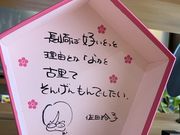 長崎ば好いとっと
理由とか「よかと
古里て
そんげんもんでしたい。
佐田玲子